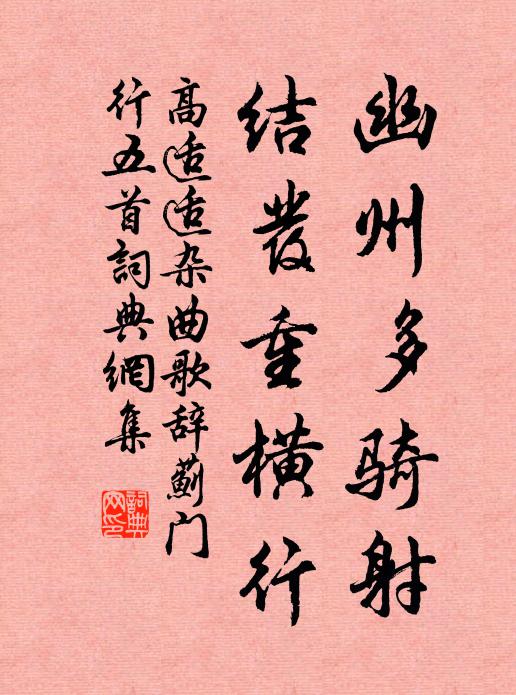 幽州多骑射
结发重横行
高适适杂曲歌辞蓟门
行五首词典网集
词典网印